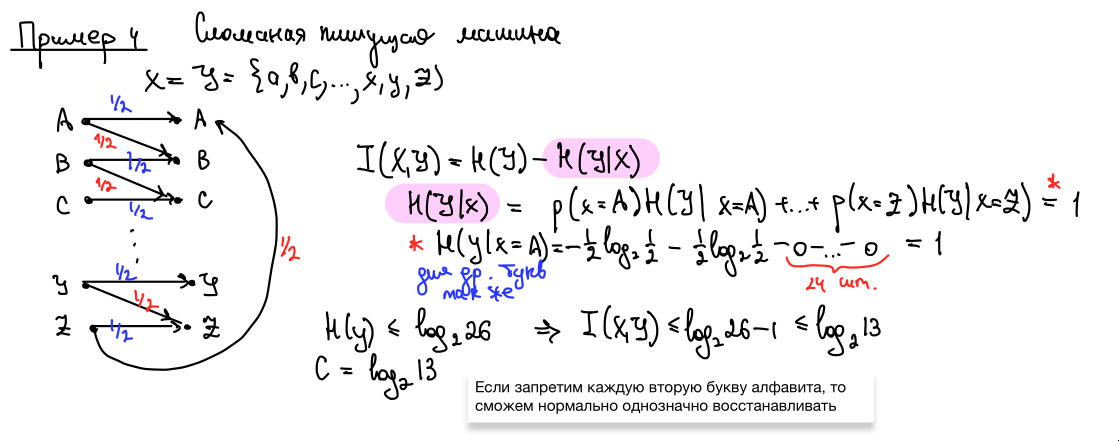 Пример 4 Сломаная пишущая машина
X = Y = {a, b, c, ..., x, y, z}
1/2
A A
1/2
B 1/2 B
1/2
C 1/2 C
1/2
Y 1/2 Y
1/2
Z 1/2 Z
I(X,Y) = H(Y) - H(Y|X)
H(Y|X) = p(x=A)H(Y| x=A) + ... + p(x=Z)H(Y|x=Z) * = 1
* H(Y|x=A) = -1/2 log₂ 1/2 - 1/2 log₂ 1/2 - 0 - ... - 0 = 1
для др. букв 24 шт.
так же
H(Y) ≤ log₂ 26 ⇒ I(X,Y) ≤ log₂ 26 - 1 ≤ log₂ 13
C = log₂ 13
Если запретим каждую вторую букву алфавита, то
сможем нормально однозначно восстанавливать